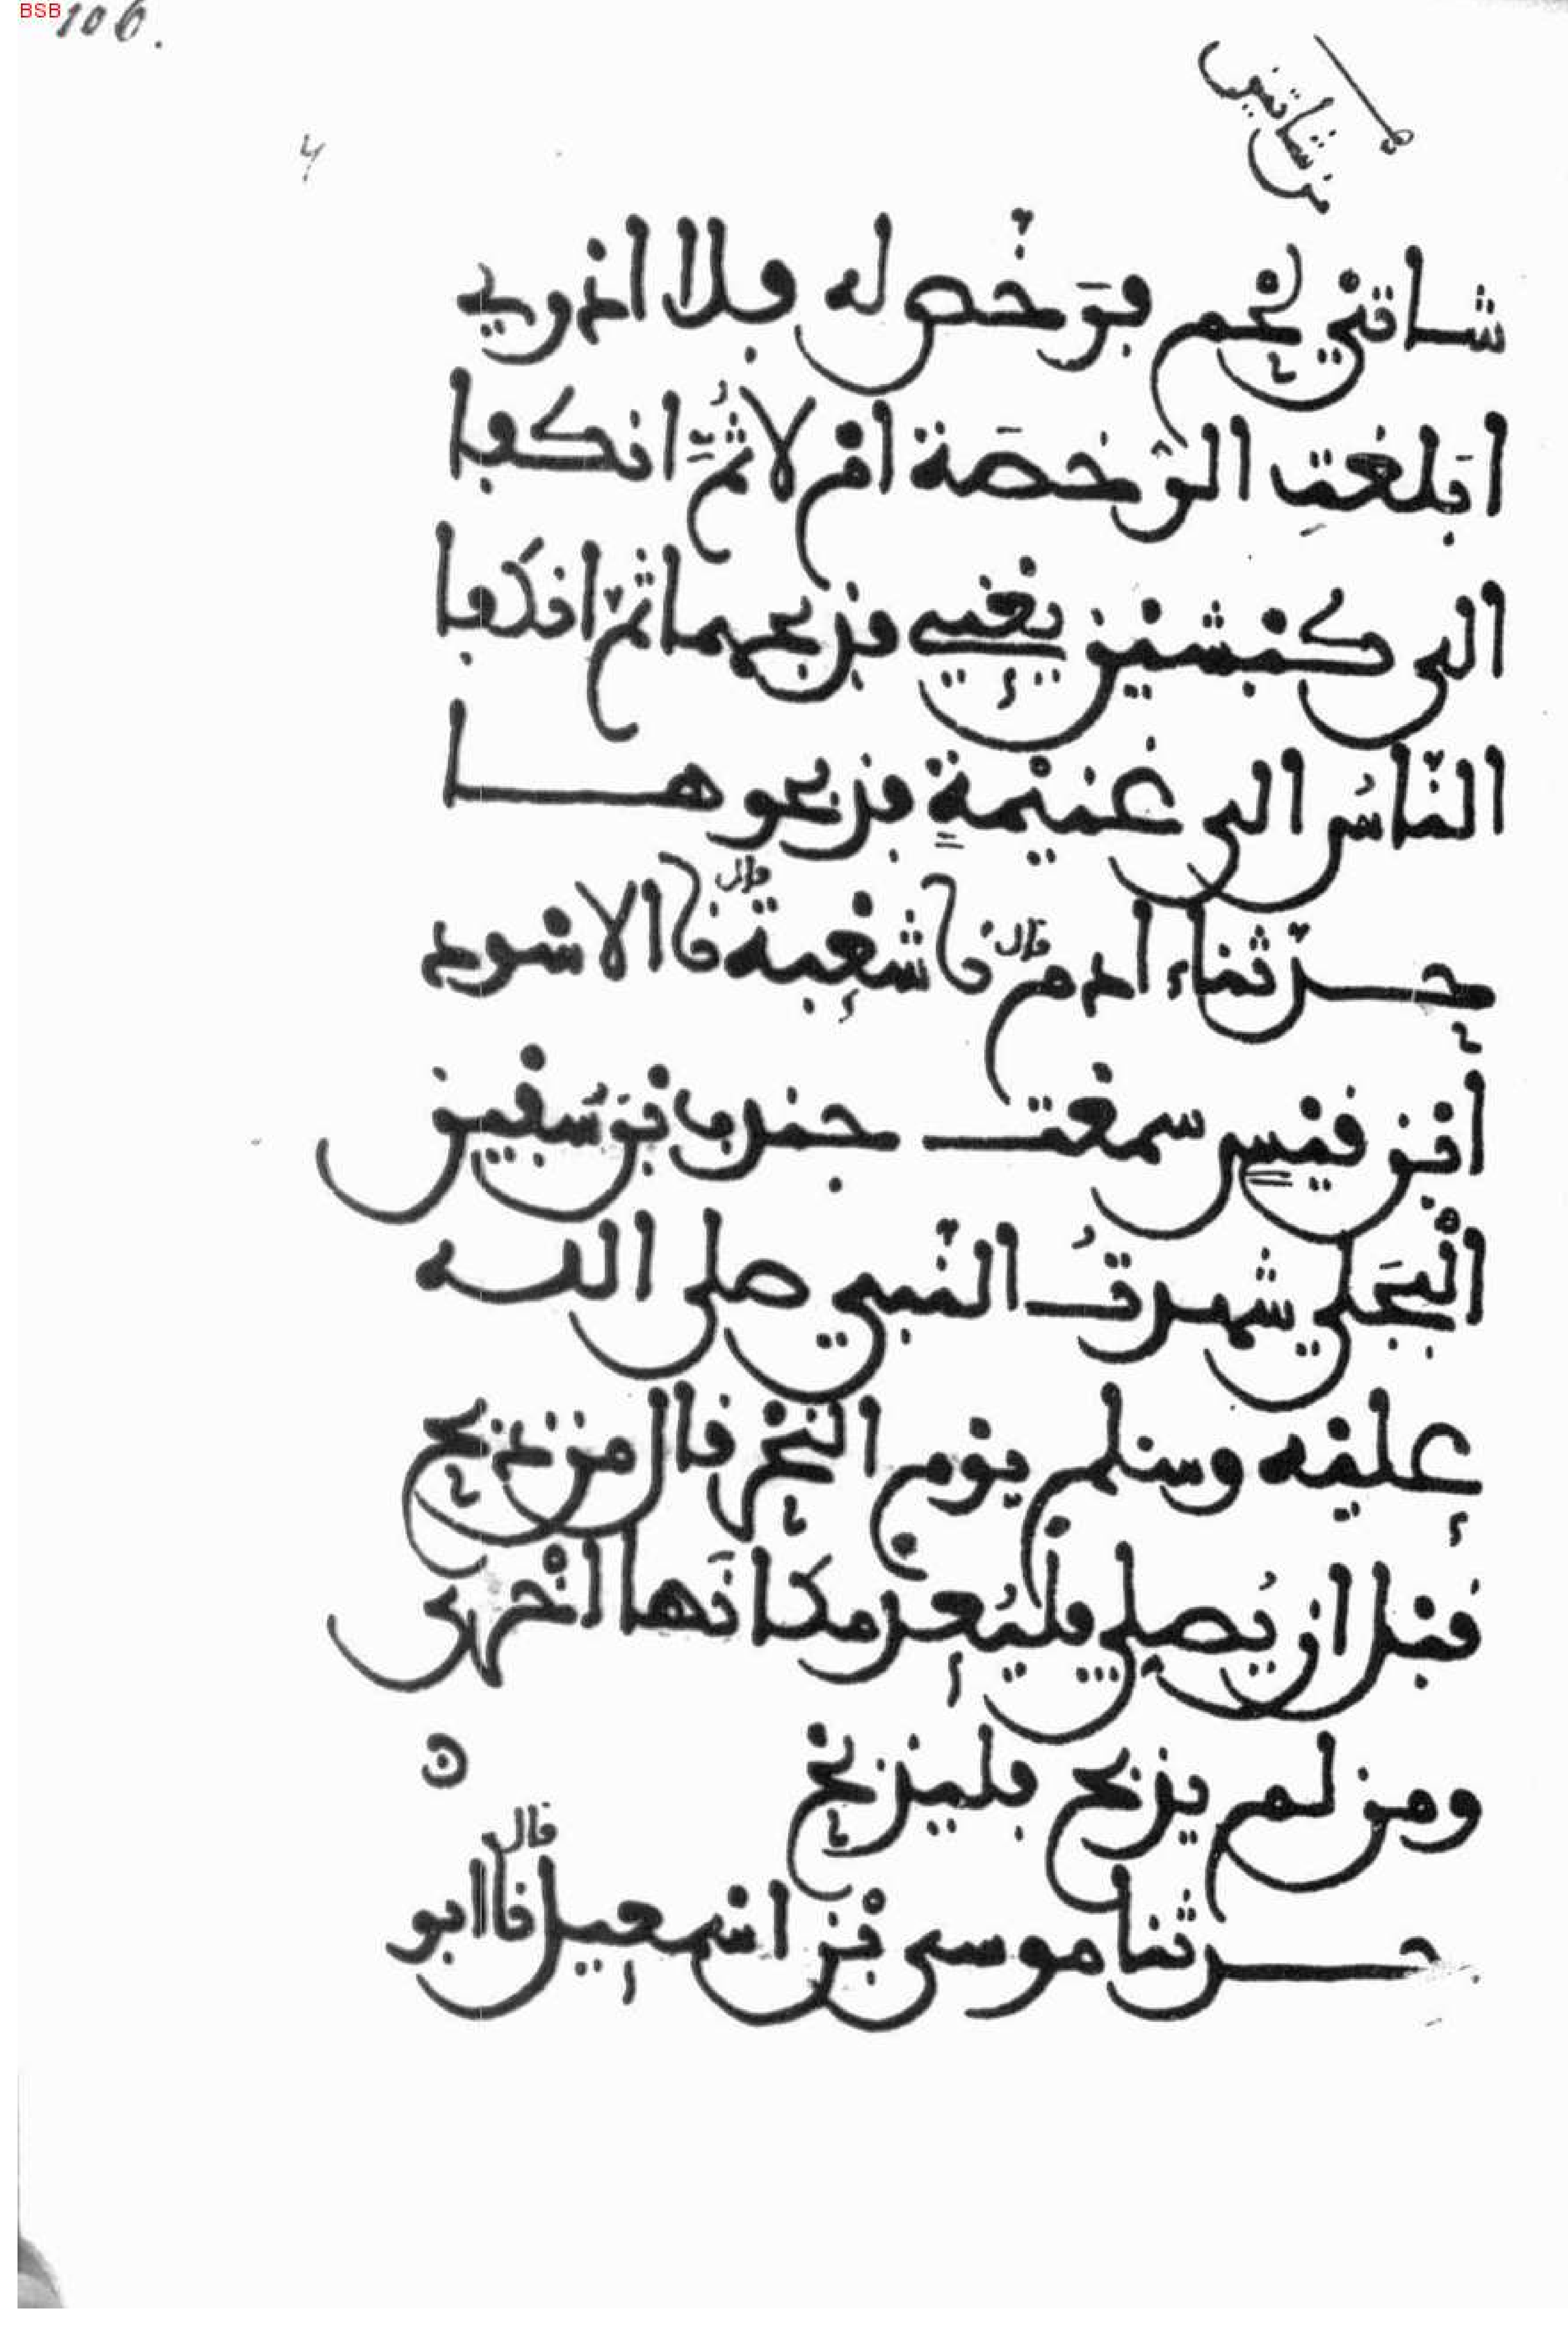 BSB 106.
من شاتين
4
شاتي لحم فرَخّص له فلا ادري
ابَلغتِ الرّخصَة ام لا ثُمَّ انكفا
الى كبشين يعني فذبحهما ثمّ انكَفا
النّاسُ الى غُنيْمةٍ فذبحوها
حدّثناء ادم قال نا شعْبة قال نا الاسْود
ابْن قيْسٍ سمعْت جندب بْنَ سُفيٰن
الْبَجَلي شهدتُ النّبي صلى الله
عليْه وسلم يوْم النحْر فال من ذبح
قبْل ان يُصلي فليُعد مكانَها اخْرى
ومن لم يذبح فليذبحْ ۞
حدثنا موسى بْن اسْمعيل قال نا ابو